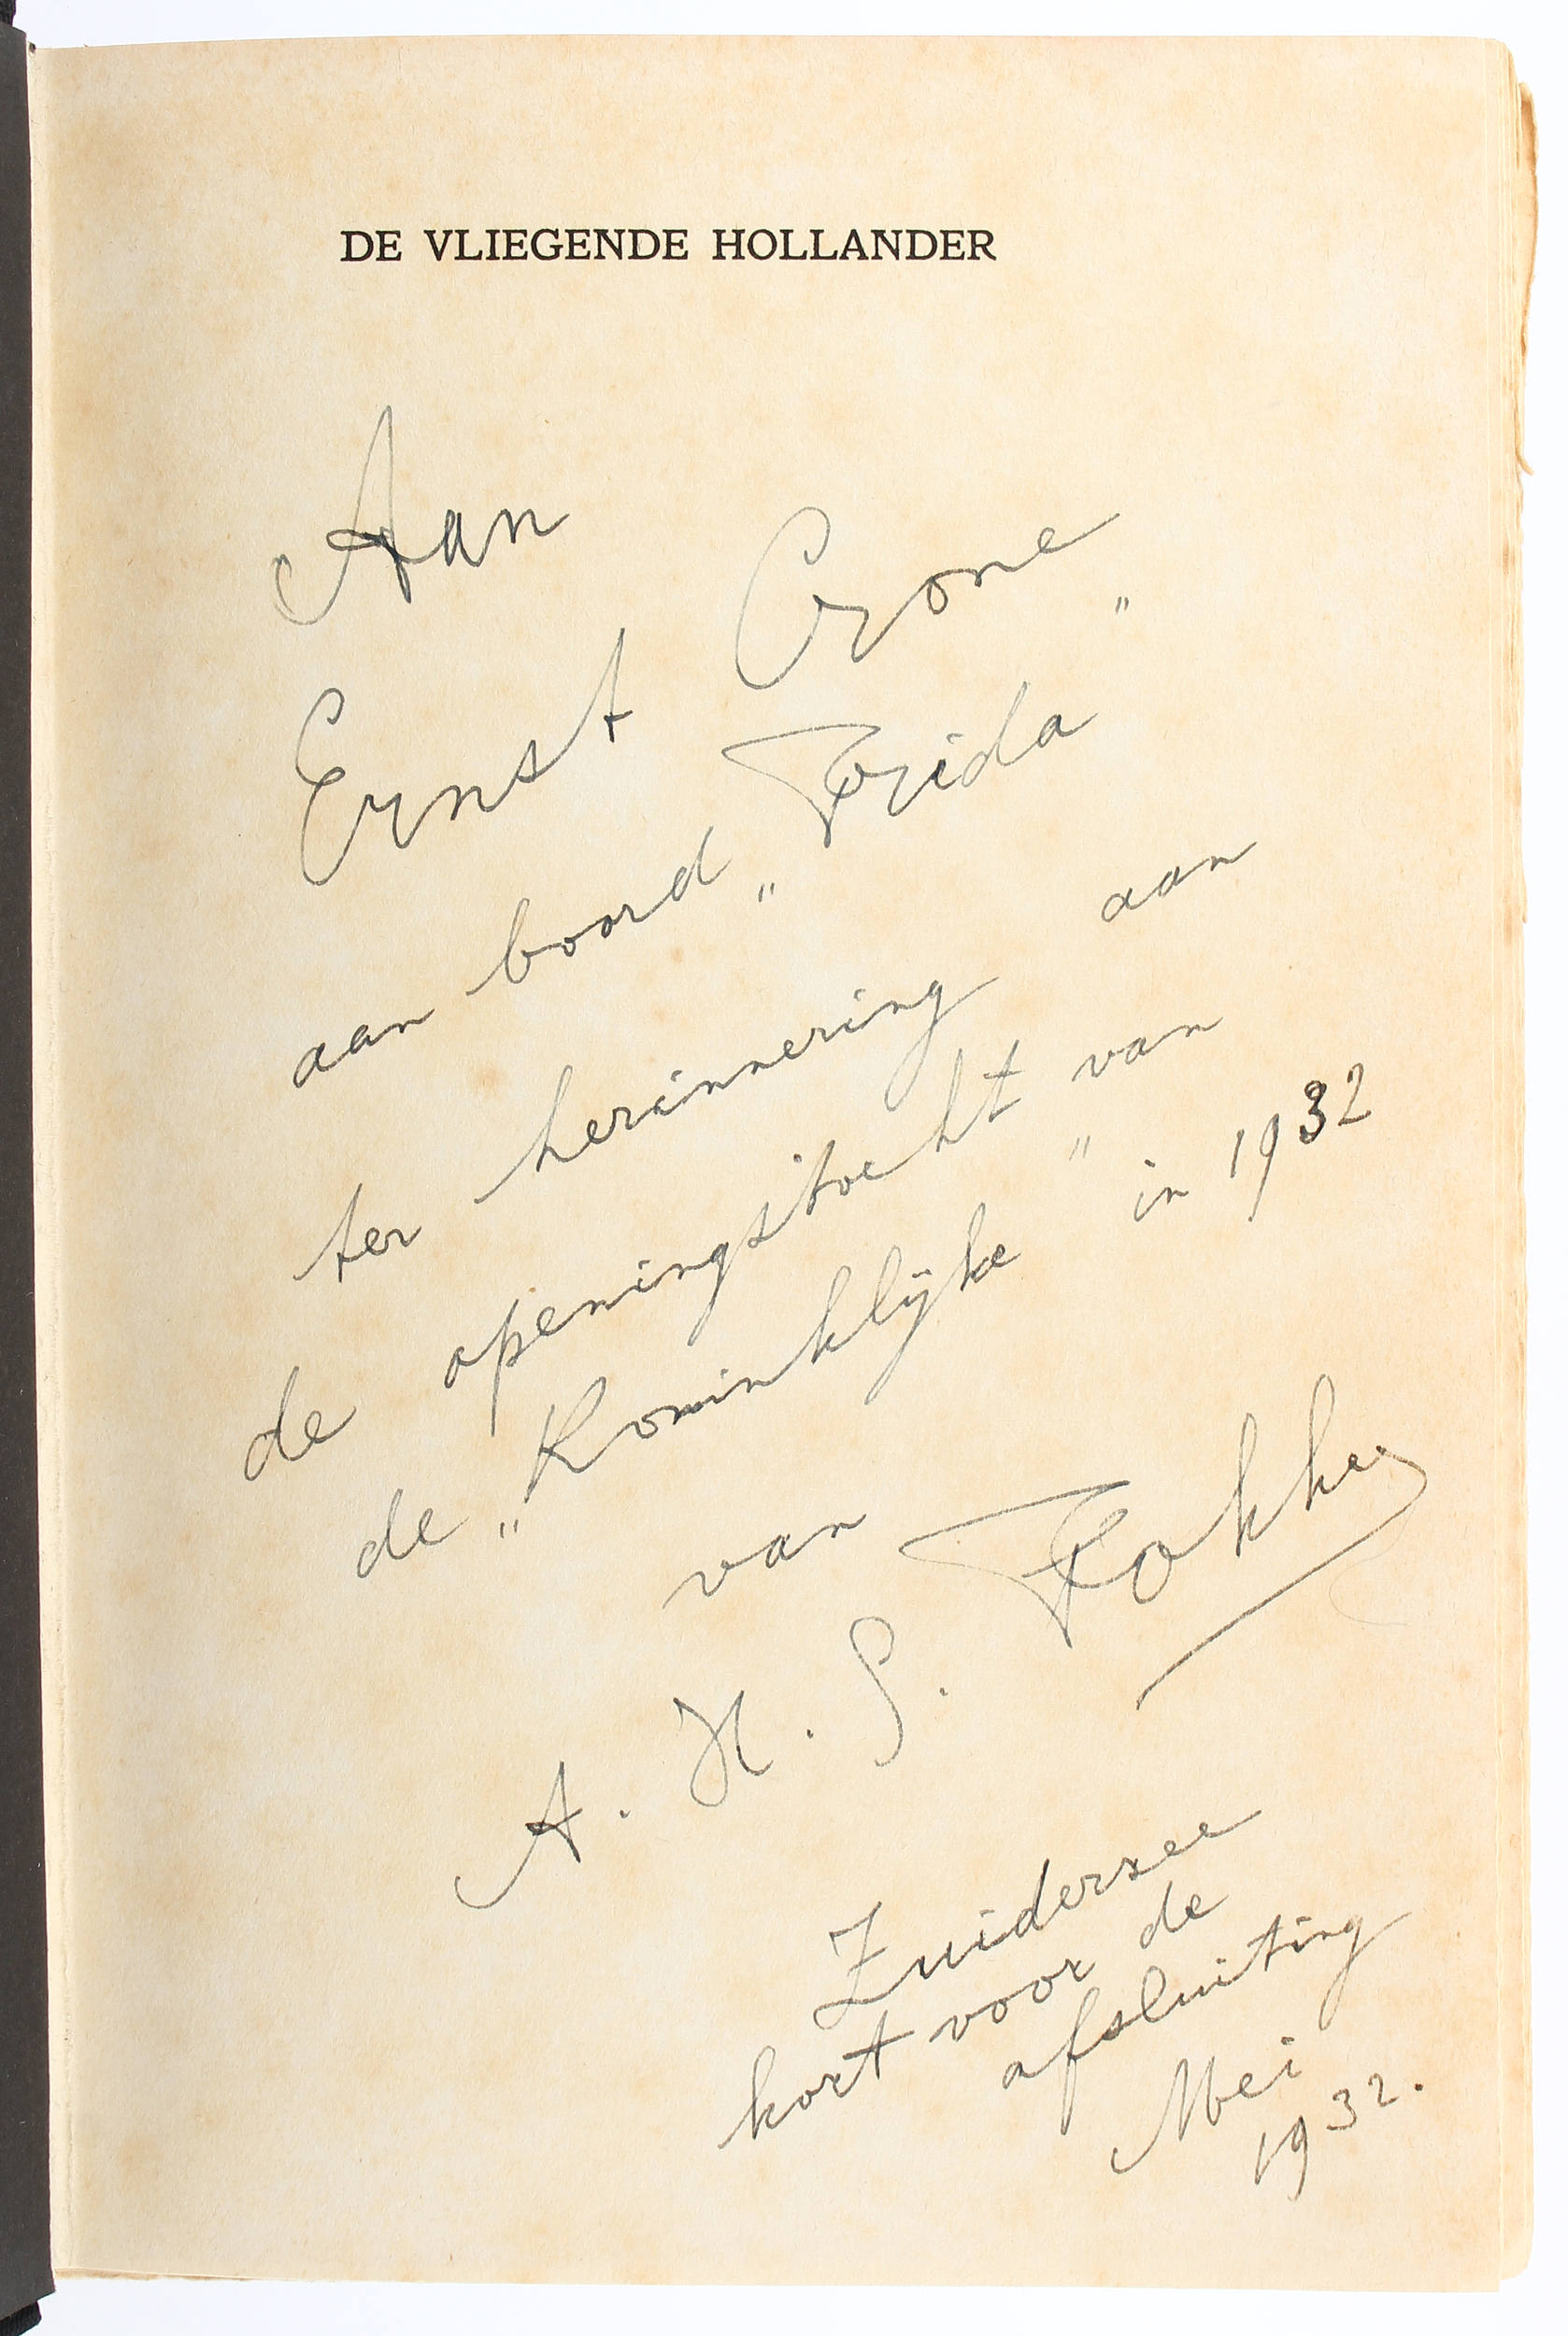 DE VLIEGENDE HOLLANDER
Aan
Ernst Crone
aan boord „Frida"
ter herinnering aan
de openingstocht van
de „Koninklijke" in 1932
van
A. H. G. Fokker
Zuidersee
kort voor de
afsluiting
Mei
1932.